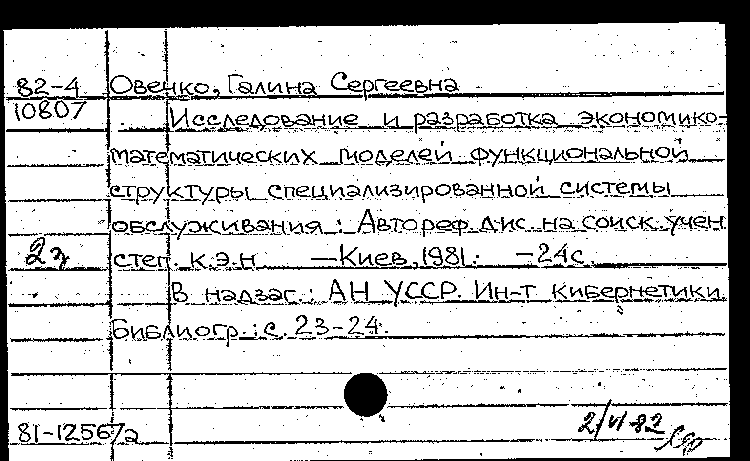 82-4 Овенко, Галина Сергеевна
10807 Исследование и разработка экономико-
математических моделей функциональной
структуры специализированной системы
обслуживания : Автореф. дис. на соиск. учен.
2э степ. к.э.н. — Киев, 1981. — 24с.
В надзаг.: АН УССР. Ин-т кибернетики.
Библиогр.: с. 23-24.
2/VI-82
81-12567а